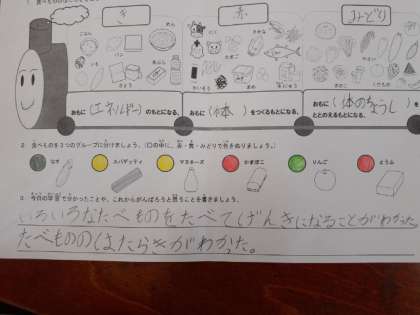 き
赤
みどり
ごはん
パン
いも
さとう
あぶら
めん
にく
さかな
たまご
かいそう
まめ
やさい
きのこ
くだもの
おもに(エネルギー)のもとになる。
おもに(体)をつくるもとになる。
おもに(体のちょうし)をととのえるもとになる。
2. 食べものを3つのグループに分けましょう。(○の中に、赤・黄・みどりで色をぬりましょう。)
なす
スパゲッティ
マヨネーズ
かまぼこ
りんご
とうふ
3. 今日の学習で分かったことや、これからがんばろうと思うことを書きましょう。
いろいろなたべものをたべてげんきになることがわかった
たべもののはたらきがわかった。